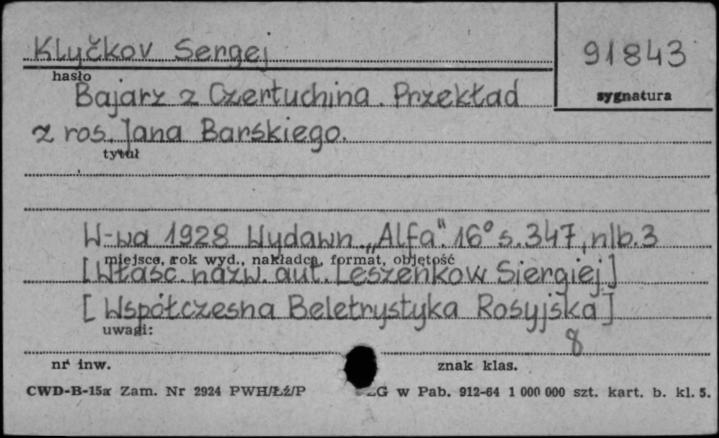 Klyčkov Sergej
91843
hasło
sygnatura
Bajarz z Czertuchina. Przekład
z ros. Jana Barskiego.
tytuł
W-wa 1928 Wydawn. „Alfa". 16° s. 347, nlb. 3
miejsce, rok wyd., nakładca, format, objętość
[Właśc. nazw. aut. Leszenkow Siergiej]
[Współczesna Beletrystyka Rosyjska]
uwagi:
8
nr inw.
znak klas.
CWD-B-15a Zam. Nr 2924 PWH/Łź/P
ZG w Pab. 912-64 1 000 000 szt. kart. b. kl. 5.